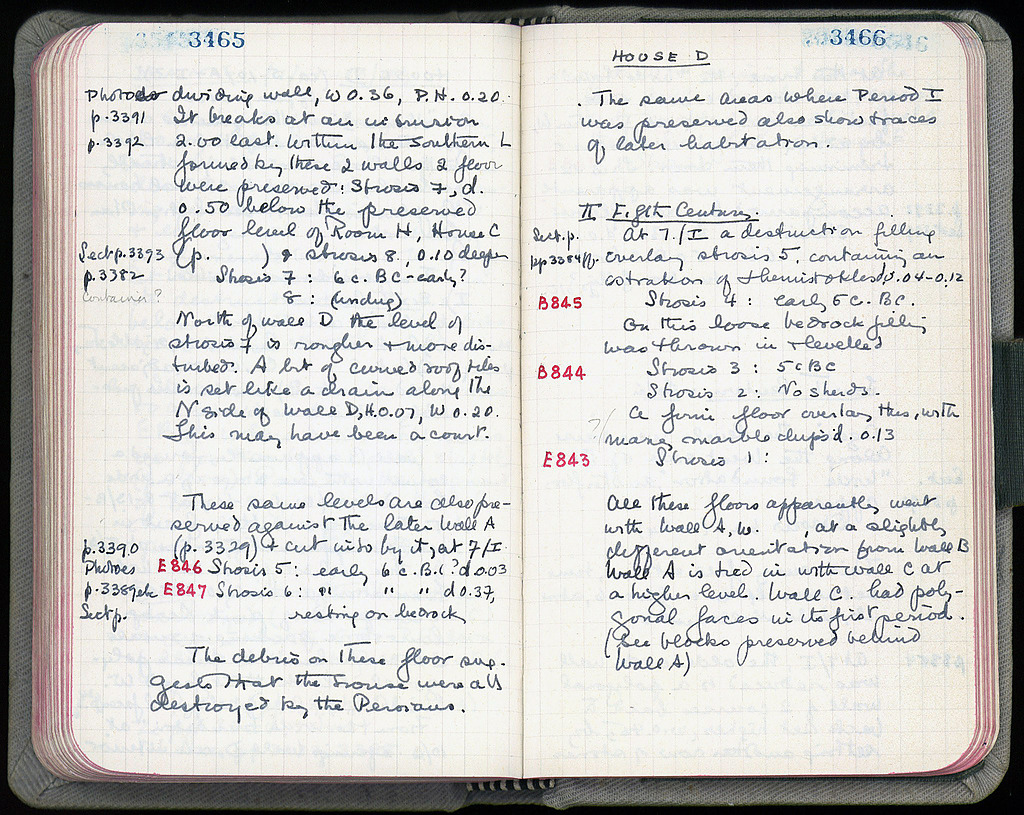 3465
Photo dividing wall, W 0.36, P.H. 0.20.
p.3391 It breaks at an intrusion
p.3392 2.00 east. Within the Southern L
formed by these 2 walls 2 floor
were preserved: Strosis 7, d.
0.50 below the preserved
floor level of Room H, House C
Sect p.3393 (p. ) & strosis 8, 0.10 deeper
p.3382 Strosis 7: 6 c. BC - early?
Container? 8:
North of wall D the level of
strosis 7 is rougher + more dis-
turbed. A bit of curved roof tiles
is set like a drain along the
N side of wall D, H. 0.07, W 0.20.
This may have been a court.
These same levels are also pre-
served against the later Wall A
p.3390 (p. 3329) + cut into by it, at 7/I
Photoes E846 Strosis 5: early 6 c. B.C.? d 0.03
p.3389 etc E847 Strosis 6: " " " d 0.37,
Sect p. resting on bedrock
The debris on these floor sug-
gests that the house were all
destroyed by the Persians.
3466
HOUSE D
The same areas where Period I
was preserved also show traces
of later habitation.
II Fifth Century.
Sect. p. At 7/I a destruction filling
pp 3384 ff. overlay strosis 5, containing an
ostrakon of Themistokles, d. 0.04-0.12
B845 Strosis 4: early 5 c. BC.
On this loose bedrock filling
was thrown in + levelled
B844 Strosis 3: 5 c BC
Strosis 2: No sherds.
? A firm floor overlay this, with
many marble chips d. 0.13
E843 Strosis 1:
All these floors apparently went
with Wall A, W. , at a slightly
different orientation from Wall B
Wall A is tied in with Wall C at
a higher level. Wall C. had poly-
gonal faces in its first period.
(See blocks preserved behind
Wall A)